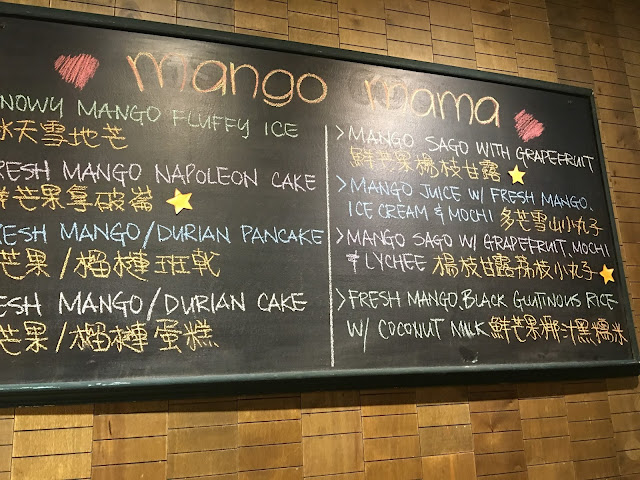 mango mama
NOWY MANGO FLUFFY ICE
冰天雪地芒
RESH MANGO NAPOLEON CAKE
鮮芒果拿破崙
RESH MANGO/DURIAN PANCAKE
芒果/榴槤班戟
ESH MANGO/DURIAN CAKE
芒果/榴槤蛋糕
>MANGO SAGO WITH GRAPEFRUIT
鮮芒果楊枝甘露
>MANGO JUICE W/ FRESH MANGO,
ICE CREAM & MOCHI 多芒雪山小丸子
>MANGO SAGO W/ GRAPEFRUIT, MOCHI
& LYCHEE 楊枝甘露荔枝小丸子
>FRESH MANGO, BLACK GLUTINOUS RICE
W/ COCONUT MILK 鮮芒果椰汁黑糯米